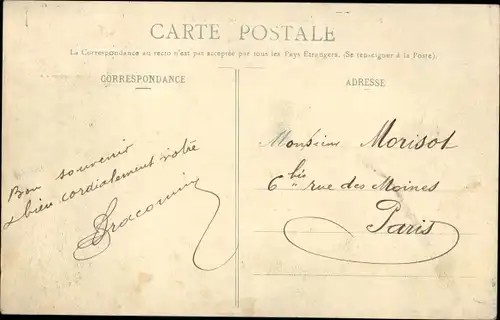 CARTE POSTALE
La Correspondance au recto n'est pas acceptée par tous les Pays Etrangers. (Se renseigner à la Poste).
CORRESPONDANCE
ADRESSE
Bon souvenir
& bien cordialement votre
Monsieur Morisot
6 bis rue des Moines
Paris